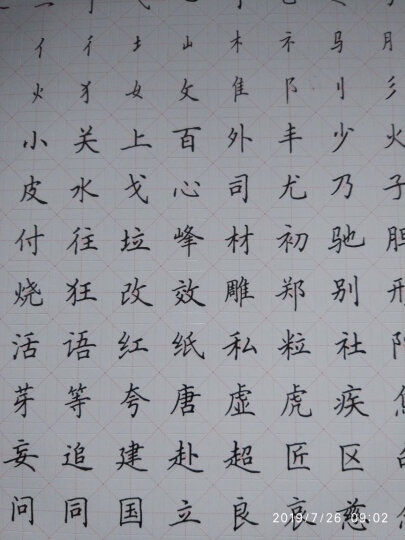 亻 彳 土 山 木 礻 马 月
火 犭 女 攵 隹 阝 刂 彡
小 关 上 百 外 丰 少 火
皮 水 戈 心 司 尤 乃 子
付 往 垃 峰 材 初 驰 胆
烧 狂 改 效 雕 郑 别 形
活 语 红 纸 私 粒 社
芽 等 夸 唐 虚 虎 疾
妄 追 建 赴 超 匠 区
问 同 国 立 良 哀 慈
2019/7/26 09:02